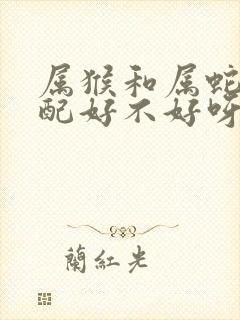 属猴和属蛇
配好不好呀
蘭紅光